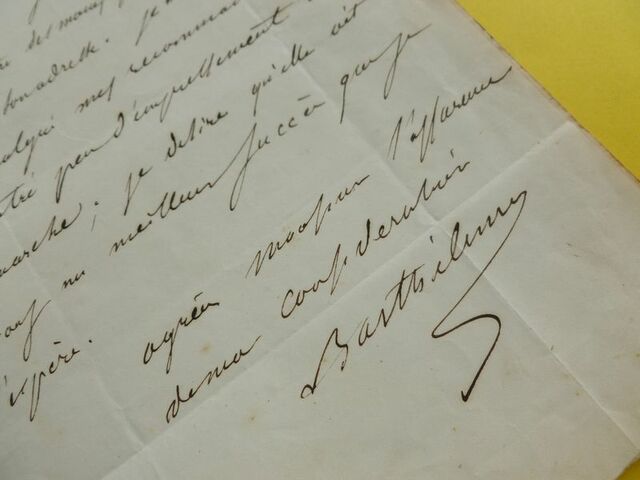 des
son adresse. je
malgré mes recommand
ntré peu d'empressement
marche; je desire qu'elle ait
un meilleur succès que je
espère. agréer Monsieur l'assurance
de ma consideration
Barthélemy